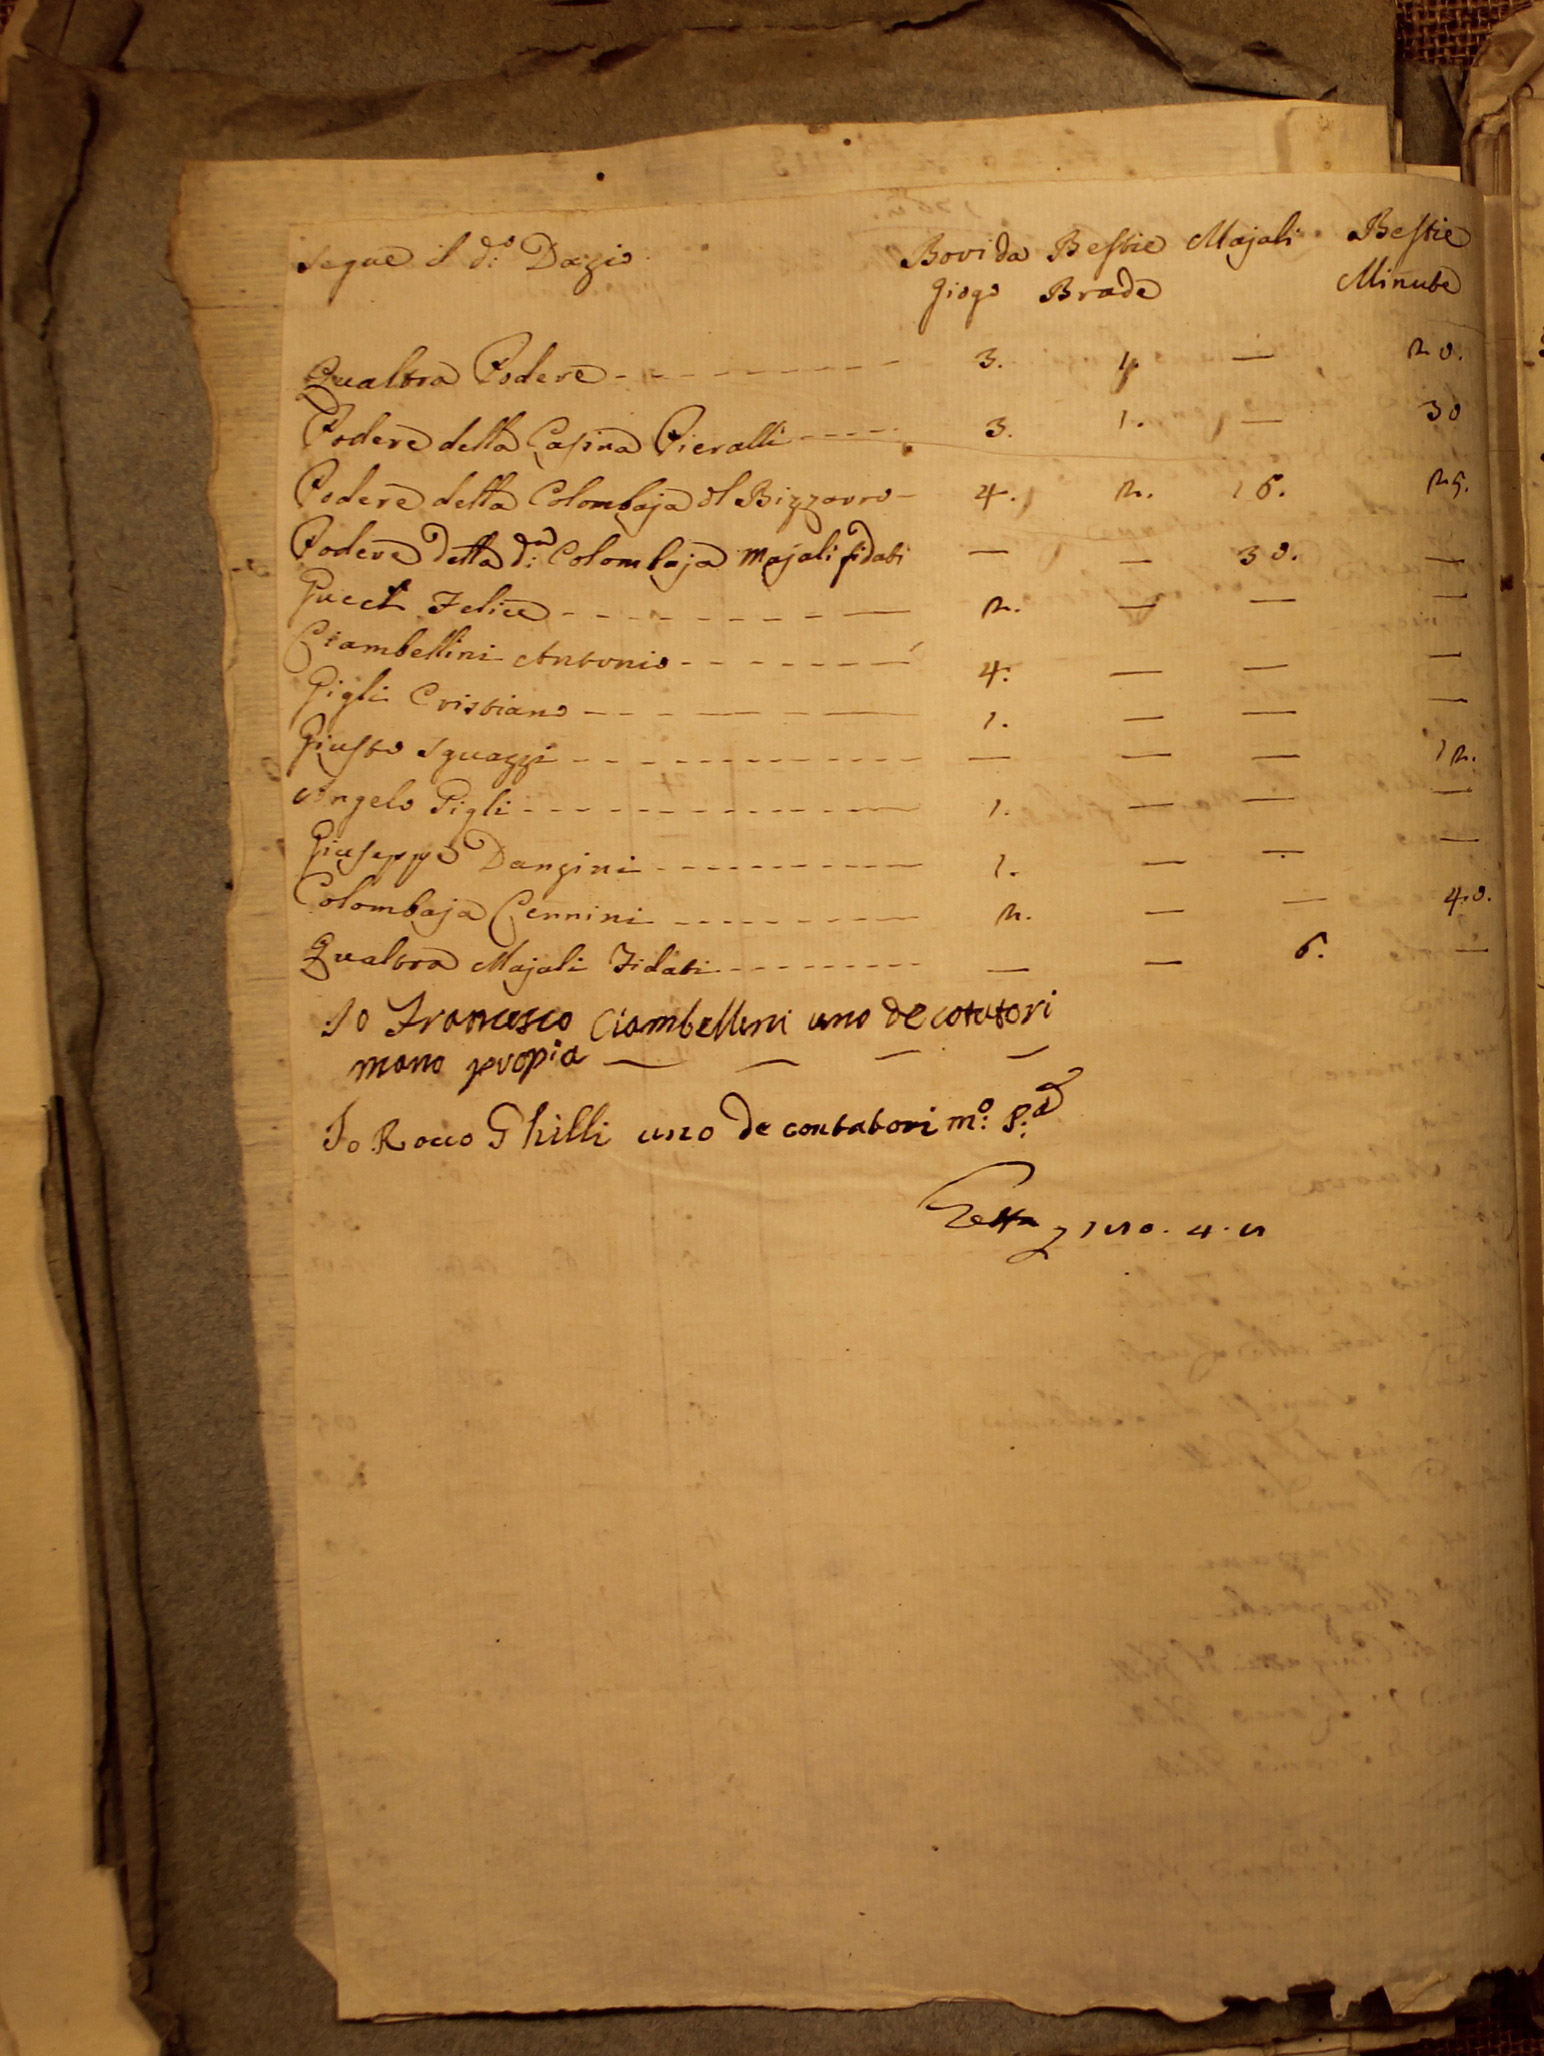 Segue il d:º Dazio
Bovi da Bestie Majali Bestie
Giogo Brade Minute
Qualtra Podere 3. 1. — 20.
Podere della Casina Pieralli 3. 1. — 30
Podere della Colombaja del Bizzarro 4. 2. 16. 25.
Podere della d:ª Colombaja Majali fidati — — 30. —
Felice 2. — — —
Ciambellini Antonio 4. — — —
Gigli Cristiano 1. — — —
Giusto Sguazzi — — — 12.
Angelo Gigli 1. — — —
Giuseppe Danzini 1. — — —
Colombaja Cennini 2. — — 40.
Qualtra Majali Fidati — — 6. —
Io Francesco Ciambellini uno de cotatori
mano propia — — — —
Io Rocco Ghilli uno de contatori m:º p:ª